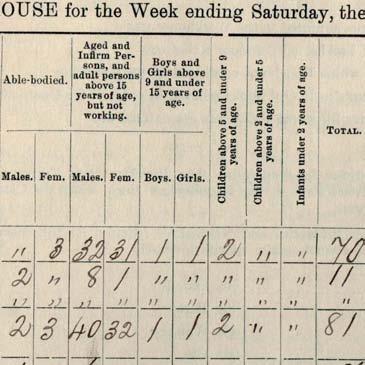 OUSE for the Week ending Saturday, the
Able-bodied.
Aged and Infirm Persons, and adult persons above 15 years of age, but not working.
Boys and Girls above 9 and under 15 years of age.
Children above 5 and under 9 years of age.
Children above 2 and under 5 years of age.
Infants under 2 years of age.
TOTAL.
Males. Fem. Males. Fem. Boys. Girls.
" 3 32 31 1 1 2 " " 70
2 " 8 1 " " " " " 11
" " " " " " " " " "
2 3 40 32 1 1 2 " " 81